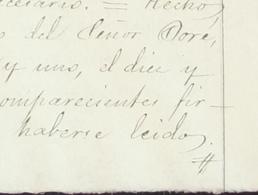 cesario. = Hecho,
s del Señor Doré,
y uno, el diez y
comparecientes fir-
haberse leido.